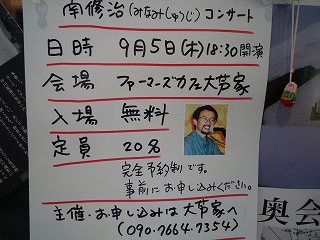 南修治(みなみしゅうじ)コンサート
日時 9月5日(木)18:30開演
会場 ファーマーズカフェ大芦家
入場 無料
定員 20名
完全予約制です。
事前にお申し込みください。
主催・お申し込みは大芦家へ
(090.7664.7354)
奥会